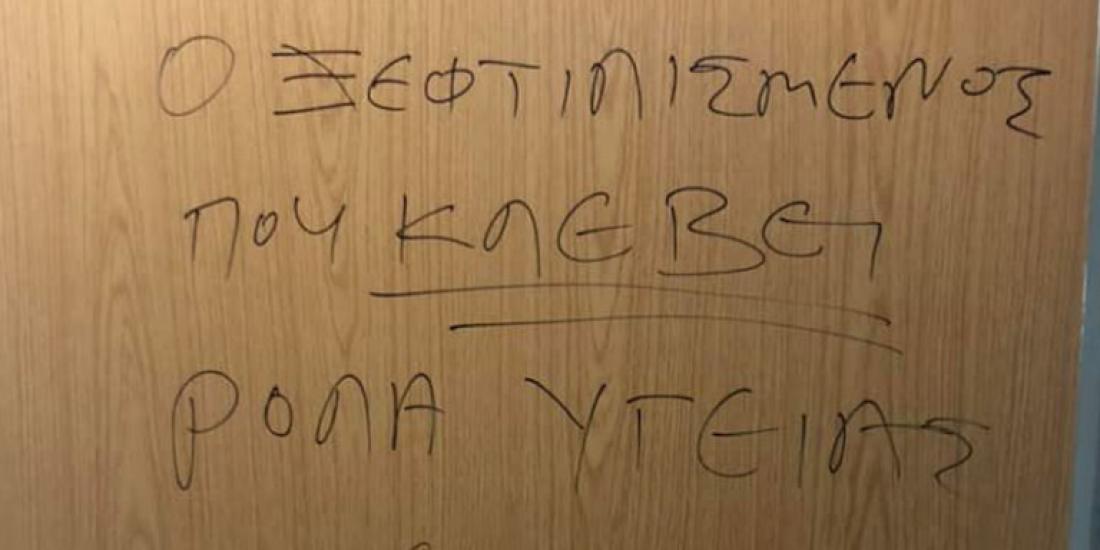 Ο ΞΕΦΤΙΛΙΣΜΕΝΟΣ
ΠΟΥ ΚΛΕΒΕΙ
ΡΟΛΑ ΥΓΕΙΑΣ